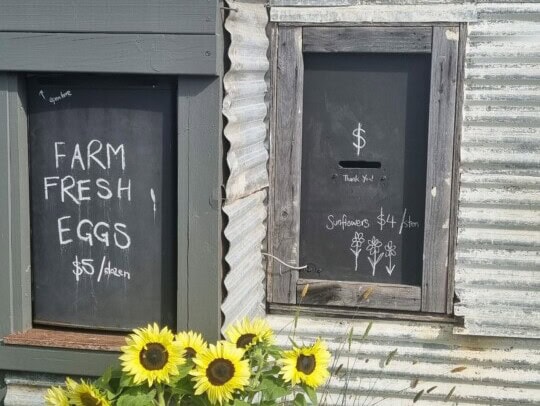 FARM
FRESH
EGGS
$5/dozen
$
Thank You!
Sunflowers $4/stem